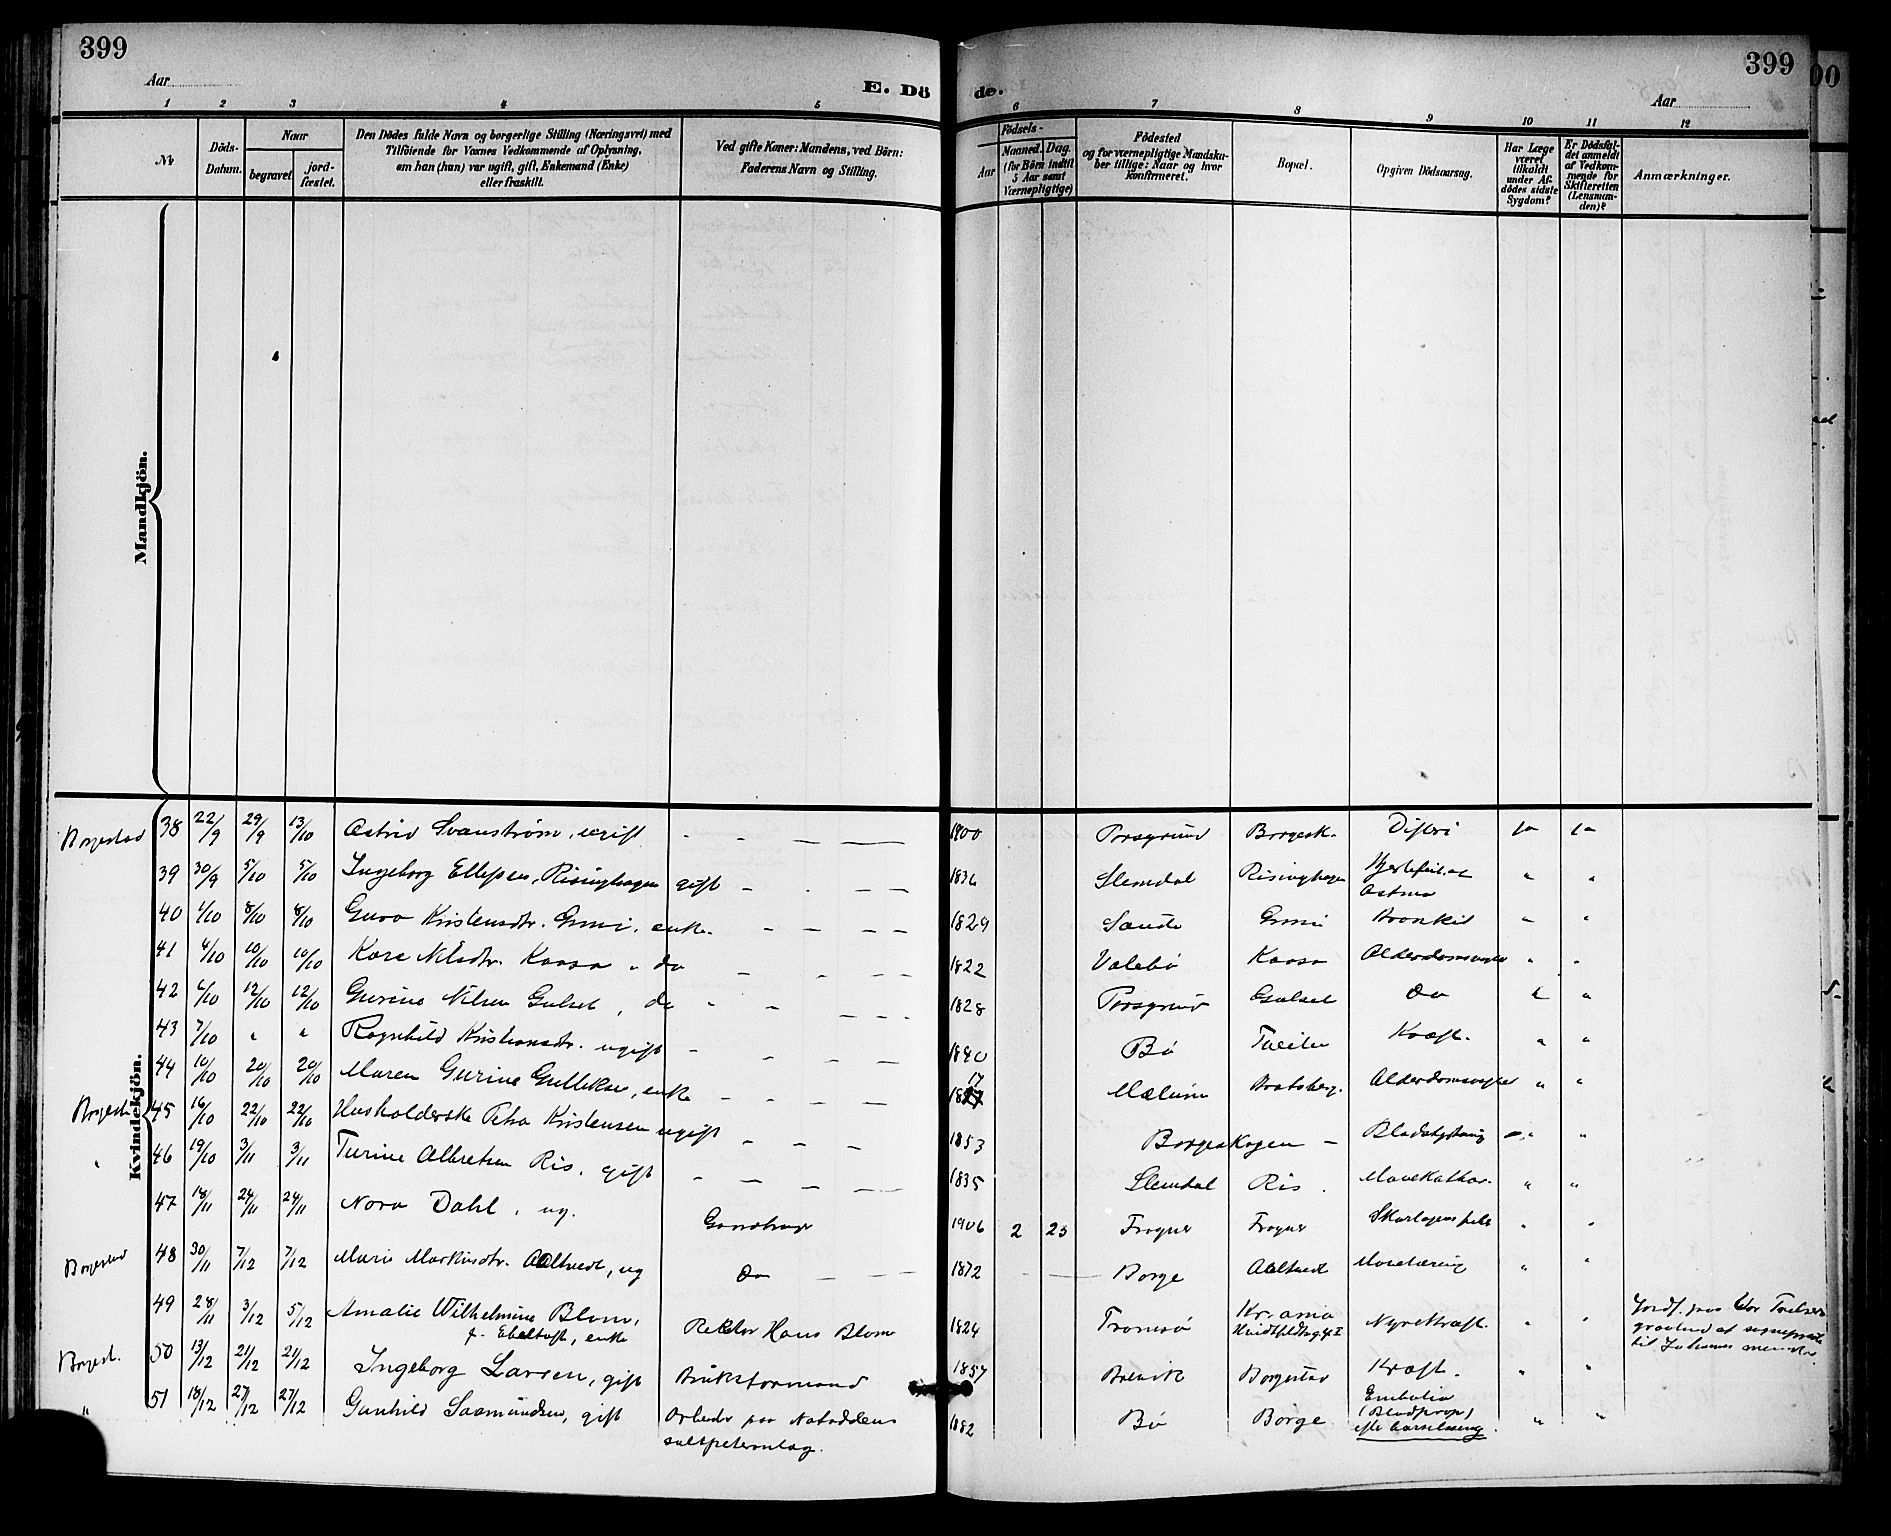 399
399
Aar
E. Dö de.
Aar
1 2 3 4 5 6 7 8 9 10 11 12
No
Döds-Datum.
Naar
begravet
jord-fæstet.
Den Dödes fulde Navn og borgerlige Stilling (Næringsvei) med
Tilföiende for Voxnes Vedkommende af Oplysning,
om han (hun) var ugift, gift, Enkemand (Enke)
eller fraskilt.
Ved gifte Koner: Mandens, ved Börn:
Faderens Navn og Stilling.
Födsels-
Aar
Maaned. Dag.
(for Börn indtil
5 Aar samt
Værnepligtige)
Födested
og for værnepligtige Mandska-
ber tillige: Naar og hvor
konfirmeret.
Bopæl.
Opgiven Dödsaarsag.
Har Læge
været
tilkaldt
under Af-
dödes sidste
Sygdom?
Er Dödsfal-
det anmeldt
af Vedkom-
mende for
Skifteretten
(Lensman-
den)?
Anmærkninger.
Mandkjön.
Kvindekjön.
Borgestad 38 22/9 29/9 13/10 Astrid Svanström, ugift 1900 Porsgrund Borgesk. Difteri ja ja
39 30/9 5/10 5/10 Ingeborg Ellefsen, Risinghagen gift 1836 Slemdal Risinghagen Hjertefeil og
Astma
40 1/10 8/10 8/10 Guro Kristensdtr. Grini, enke. 1829 Saude Grini Bronkit
41 4/10 10/10 10/10 Kare Nilsdtr. Kaasa do 1822 Valebö Kaasa Alderdomssvaghed
42 6/10 12/10 12/10 Gurine Nilsen Gulset, do 1828 Porsgrund Gulset Do
43 7/10 " " Ragnhild Kristiansdtr. ugift 1840 Bö Tveiter Kræft.
44 10/10 20/10 20/10 Maren Gurine Gulliksen, enke 17 18 Mælum Bratsberg. Alderdomssvaghed
Borgest. 45 16/10 22/10 22/10 Husholderske Petra Kristensen ugift 1853 Borgeskogen
" 46 19/10 3/11 3/11 Turine Albretsen Ris, gift 1835 Slemdal Ris Mavekathar.
47 18/11 24/11 24/11 Nora Dahl, ug. 1906 2 25 Frogner Frogner
Borgestad 48 30/11 7/12 7/12 Marie Martinsdtr. Aaltvedt, ug Do 1872 Borge Aaltvedt
49 28/11 3/12 5/12 Amalie Wilhelmine Blom,
f. Ebeltoft, enke Rektor Hans Blom 1824 Tromsö Kr.ania
Nyrekræft.
Borgest. 50 13/12 21/12 21/12 Ingeborg Larsen, gift Bruksformand 1857 Brevik Borgestad Kræft.
" 51 18/12 27/12 27/12 Gunhild Saamundsen, gift Arbeider paa Notoddens
saltpeteranlæg. 1882 Bö Borge Embolia
(Blodprop)
efter barselseng.